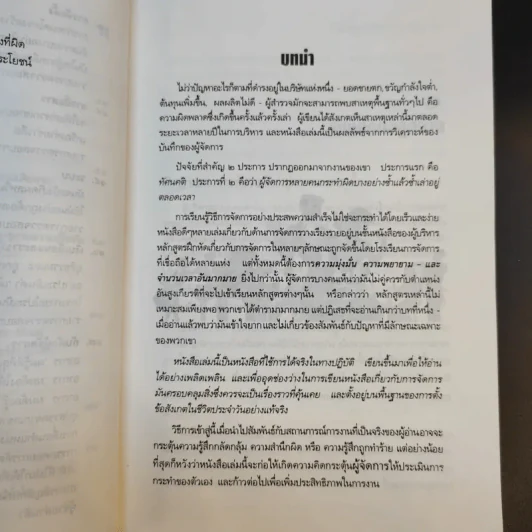 งที่ผิด
ระโยชน์
บทนำ
ไม่ว่าปัญหาอะไรก็ตามที่ดำรงอยู่ในบริษัทแห่งหนึ่ง - ยอดขายตก, ขวัญกำลังใจต่ำ,
ต้นทุนเพิ่มขึ้น, ผลผลิตไม่ดี - ผู้สำรวจมักจะสามารถพบสาเหตุพื้นฐานทั่วๆไป คือ
ความผิดพลาดซึ่งเกิดขึ้นครั้งแล้วครั้งเล่า ผู้เขียนได้สังเกตเห็นสาเหตุเหล่านี้มาตลอด
ระยะเวลาหลายปีในการบริหาร และหนังสือเล่มนี้เป็นผลลัพธ์จากการวิเคราะห์ของ
บันทึกของผู้จัดการ
ปัจจัยที่สำคัญ ๒ ประการ ปรากฏออกมาจากงานของเขา ประการแรก คือ
ทัศนคติ ประการที่ ๒ คือว่า ผู้จัดการหลายคนกระทำผิดบางอย่างซ้ำแล้วซ้ำเล่าอยู่
ตลอดเวลา
การเรียนรู้วิธีการจัดการอย่างประสพความสำเร็จไม่ใช่จะกระทำได้โดยเร็วและง่าย
หนังสือดีๆหลายเล่มเกี่ยวกับด้านการจัดการวางเรียงรายอยู่บนชั้นหนังสือของผู้บริหาร
หลักสูตรฝึกหัดเกี่ยวกับการจัดการในหลายๆลักษณะถูกจัดขึ้นโดยโรงเรียนการจัดการ
ที่เชื่อถือได้หลายแห่ง แต่ทั้งหมดนี้ต้องการความมุ่งมั่น ความพยายาม - และ
จำนวนเวลาอันมากมาย ยิ่งไปกว่านั้น ผู้จัดการบางคนเห็นว่ามันไม่คู่ควรกับตำแหน่ง
อันสูงเกียรติที่จะไปเข้าเรียนหลักสูตรต่างๆนั้น หรือกล่าวว่า หลักสูตรเหล่านี้ไม่
เหมาะสมเพียงพอ พวกเขาได้ตำรามามากมาย แต่ปฏิเสธที่จะอ่านเกินกว่าบทที่หนึ่ง -
เมื่ออ่านแล้วพบว่ามันเข้าใจยาก และไม่เกี่ยวข้องสัมพันธ์กับปัญหาที่มีลักษณะเฉพาะ
ของพวกเขา
หนังสือเล่มนี้เป็นหนังสือที่ใช้การได้จริงในทางปฏิบัติ เขียนขึ้นมาเพื่อให้อ่าน
ได้อย่างเพลิดเพลิน และเพื่ออุดช่องว่างในการเขียนหนังสือเกี่ยวกับการจัดการ
มันครอบคลุมสิ่งซึ่งควรจะเป็นเรื่องราวที่คุ้นเคย และตั้งอยู่บนพื้นฐานของการตั้ง
ข้อสังเกตในชีวิตประจำวันอย่างแท้จริง
วิธีการเข้าสู่นี้เมื่อนำไปสัมพันธ์กับสถานการณ์การงานที่เป็นจริงของผู้อ่านอาจจะ
กระตุ้นความรู้สึกกลัดกลุ้ม ความสำนึกผิด หรือ ความรู้สึกถูกทำร้าย แต่อย่างน้อย
ที่สุดก็หวังว่าหนังสือเล่มนี้จะก่อให้เกิดความคิดกระตุ้นผู้จัดการให้ประเมินการ
กระทำของตัวเอง และก้าวต่อไปเพื่อเพิ่มประสิทธิภาพในการงาน